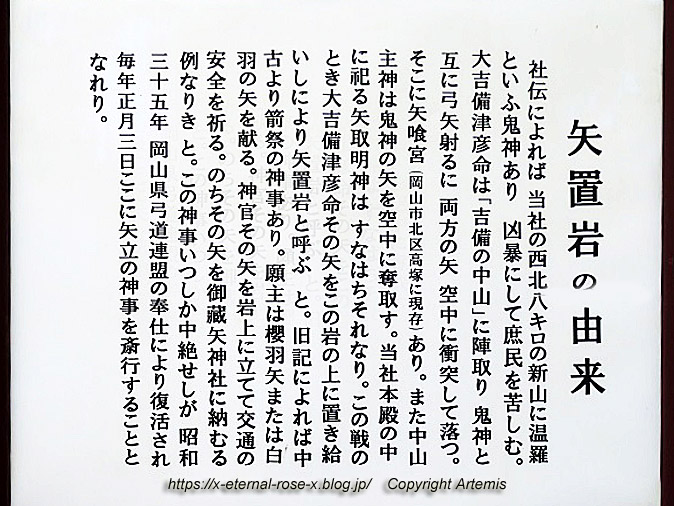 矢置岩の由来
社伝によれば 当社の西北八キロの新山に温羅
といふ鬼神あり 凶暴にして庶民を苦しむ。
大吉備津彦命は「吉備の中山」に陣取り 鬼神と
互に弓矢射るに 両方の矢 空中に衝突して落つ。
そこに矢喰宮(岡山市北区高塚に現存)あり。また中山
主神は鬼神の矢を空中に奪取す。当社本殿の中
に祀る矢取明神は すなはちそれなり。この戦の
とき大吉備津彦命その矢をこの岩の上に置き給
いしにより矢置岩と呼ぶ と。旧記によれば中
古より箭祭の神事あり。願主は櫻羽矢または白
羽の矢を献る。神官その矢を岩上に立てて交通の
安全を祈る。のちその矢を御蔵矢神社に納むる
例なりき と。この神事いつしか中絶せしが 昭和
三十五年 岡山県弓道連盟の奉仕により復活され
毎年正月三日ここに矢立の神事を斎行することと
なれり。
https://x-eternal-rose-x.blog.jp/ Copyright Artemis